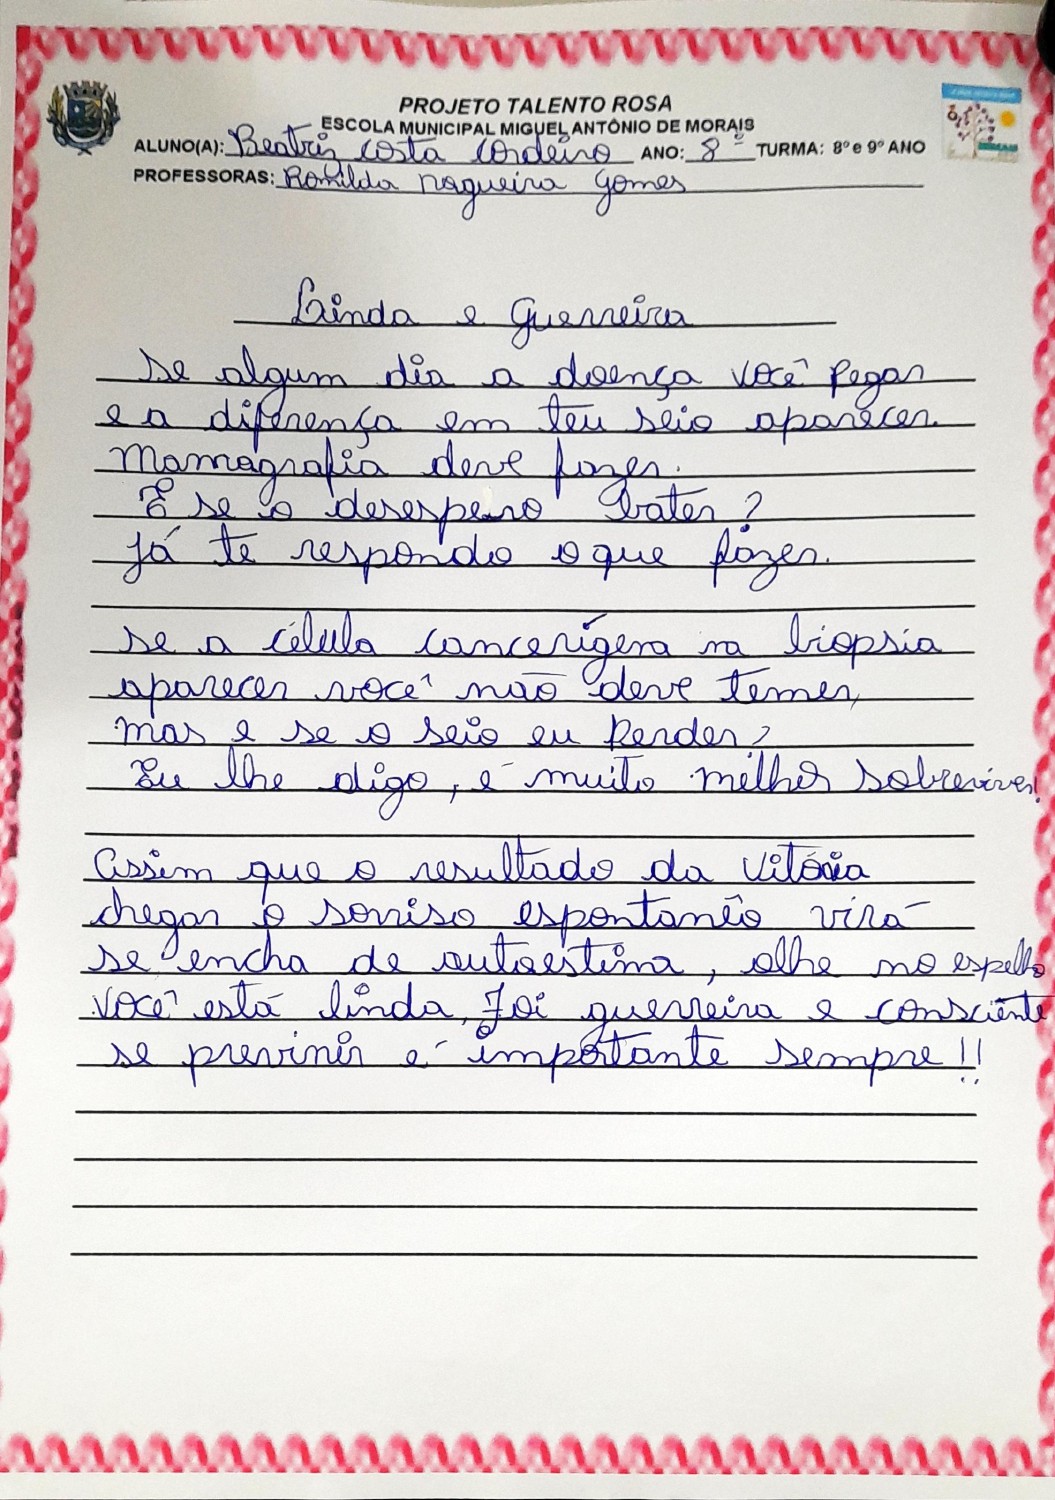 PROJETO TALENTO ROSA
ESCOLA MUNICIPAL MIGUEL ANTÔNIO DE MORAIS
ALUNO(A): Beatriz Costa Cordeiro ANO: 8º TURMA: 8º e 9º ANO
PROFESSORAS: Romilda Nogueira Gomes
Linda e Guerreira
Se algum dia a doença você pegar
e a diferença em teu seio aparecer.
Mamografia deve fazer.
E se o desespero bater?
Já te respondo o que fazer.
Se a célula cancerígena na biopsia
aparecer você não deve temer,
mas e se o seio eu perder?
Eu lhe digo, é muito melhor sobreviver!
Assim que o resultado da vitória
chegar o sorriso espontanêo virá
se encha de autoestima, olhe no espelho
você está linda, foi guerreira e consciênte
se previnir é importante sempre!!